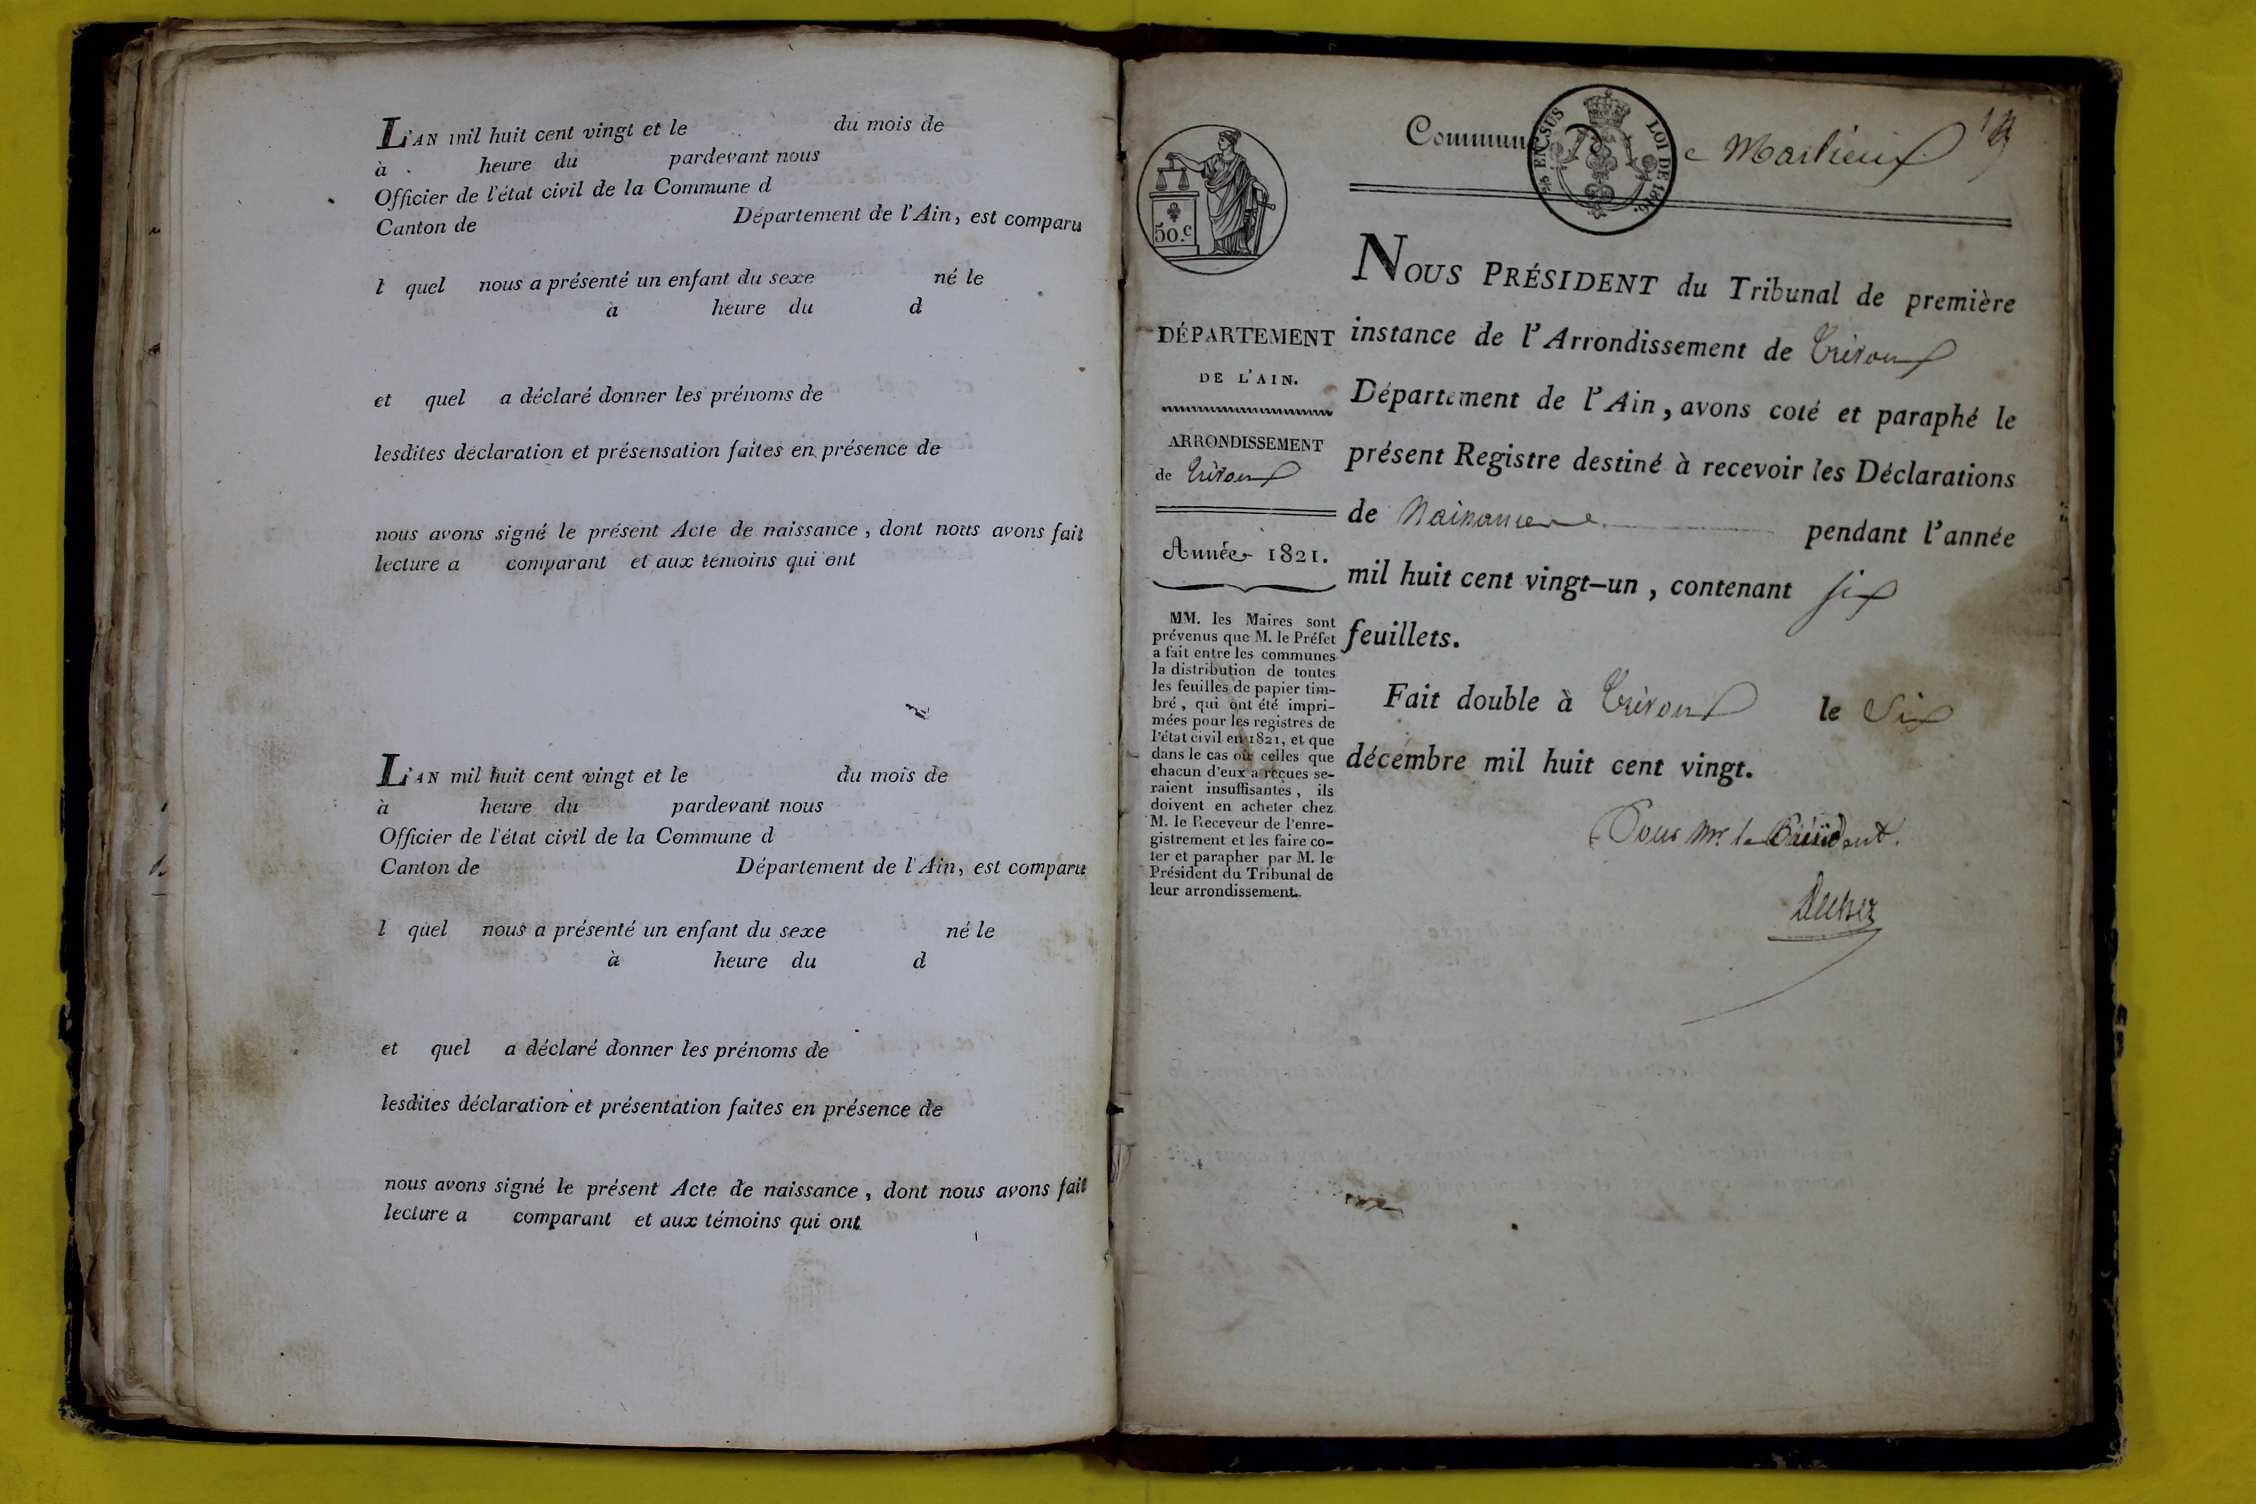 L'AN mil huit cent vingt et le du mois de
à heure du pardevant nous
Officier de l'état civil de la Commune d
Canton de Département de l'Ain, est comparu
l quel nous a présenté un enfant du sexe né le
à heure du d
et quel a déclaré donner les prénoms de
lesdites déclaration et présensation faites en présence de
nous avons signé le présent Acte de naissance, dont nous avons fait
lecture a comparant et aux témoins qui ont
L'AN mil huit cent vingt et le du mois de
à heure du pardevant nous
Officier de l'état civil de la Commune d
Canton de Département de l'Ain, est comparu
l quel nous a présenté un enfant du sexe né le
à heure du d
et quel a déclaré donner les prénoms de
lesdites déclaration et présentation faites en présence de
nous avons signé le présent Acte de naissance, dont nous avons fait
lecture a comparant et aux témoins qui ont
50.c
DÉPARTEMENT
DE L'AIN.
ARRONDISSEMENT
de Trévoux
Année 1821.
MM. les Maires sont
prévenus que M. le Préfet
a fait entre les communes
la distribution de toutes
les feuilles de papier tim-
bré, qui ont été impri-
mées pour les registres de
l'état civil en 1821, et que
dans le cas où celles que
chacun d'eux a reçues se-
raient insuffisantes, ils
doivent en acheter chez
M. le Receveur de l'enre-
gistrement et les faire co-
ter et parapher par M. le
Président du Tribunal de
leur arrondissement.
Commune Marlieux
EN SUS LOI DE 1816.
NOUS PRÉSIDENT du Tribunal de première
instance de l'Arrondissement de Trévoux
Département de l'Ain, avons coté et paraphé le
présent Registre destiné à recevoir les Déclarations
de Naissance pendant l'année
mil huit cent vingt-un, contenant six
feuillets.
Fait double à Trévoux le Six
décembre mil huit cent vingt.
Pour Mr. le Président.